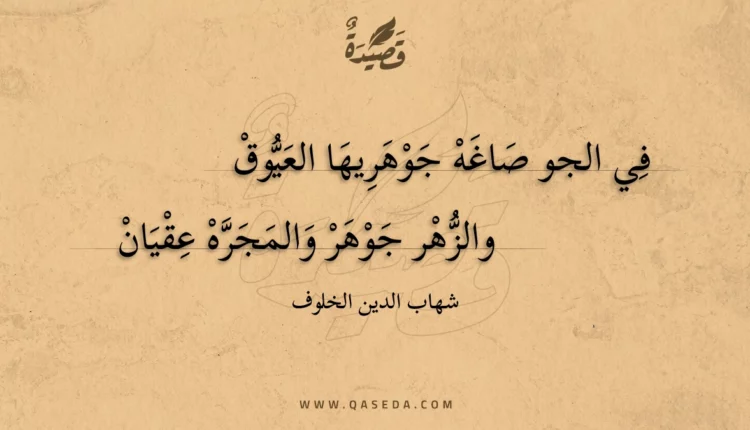 قَصِيدَةٌ
فِي الجو صَاغَهْ جَوْهَرِيهَا العَيُّوقْ
والزُّهْر جَوْهَرْ وَالمَجَرَّهْ عِقْيَانْ
شهاب الدين الخلوف
WWW.QASEDA.COM